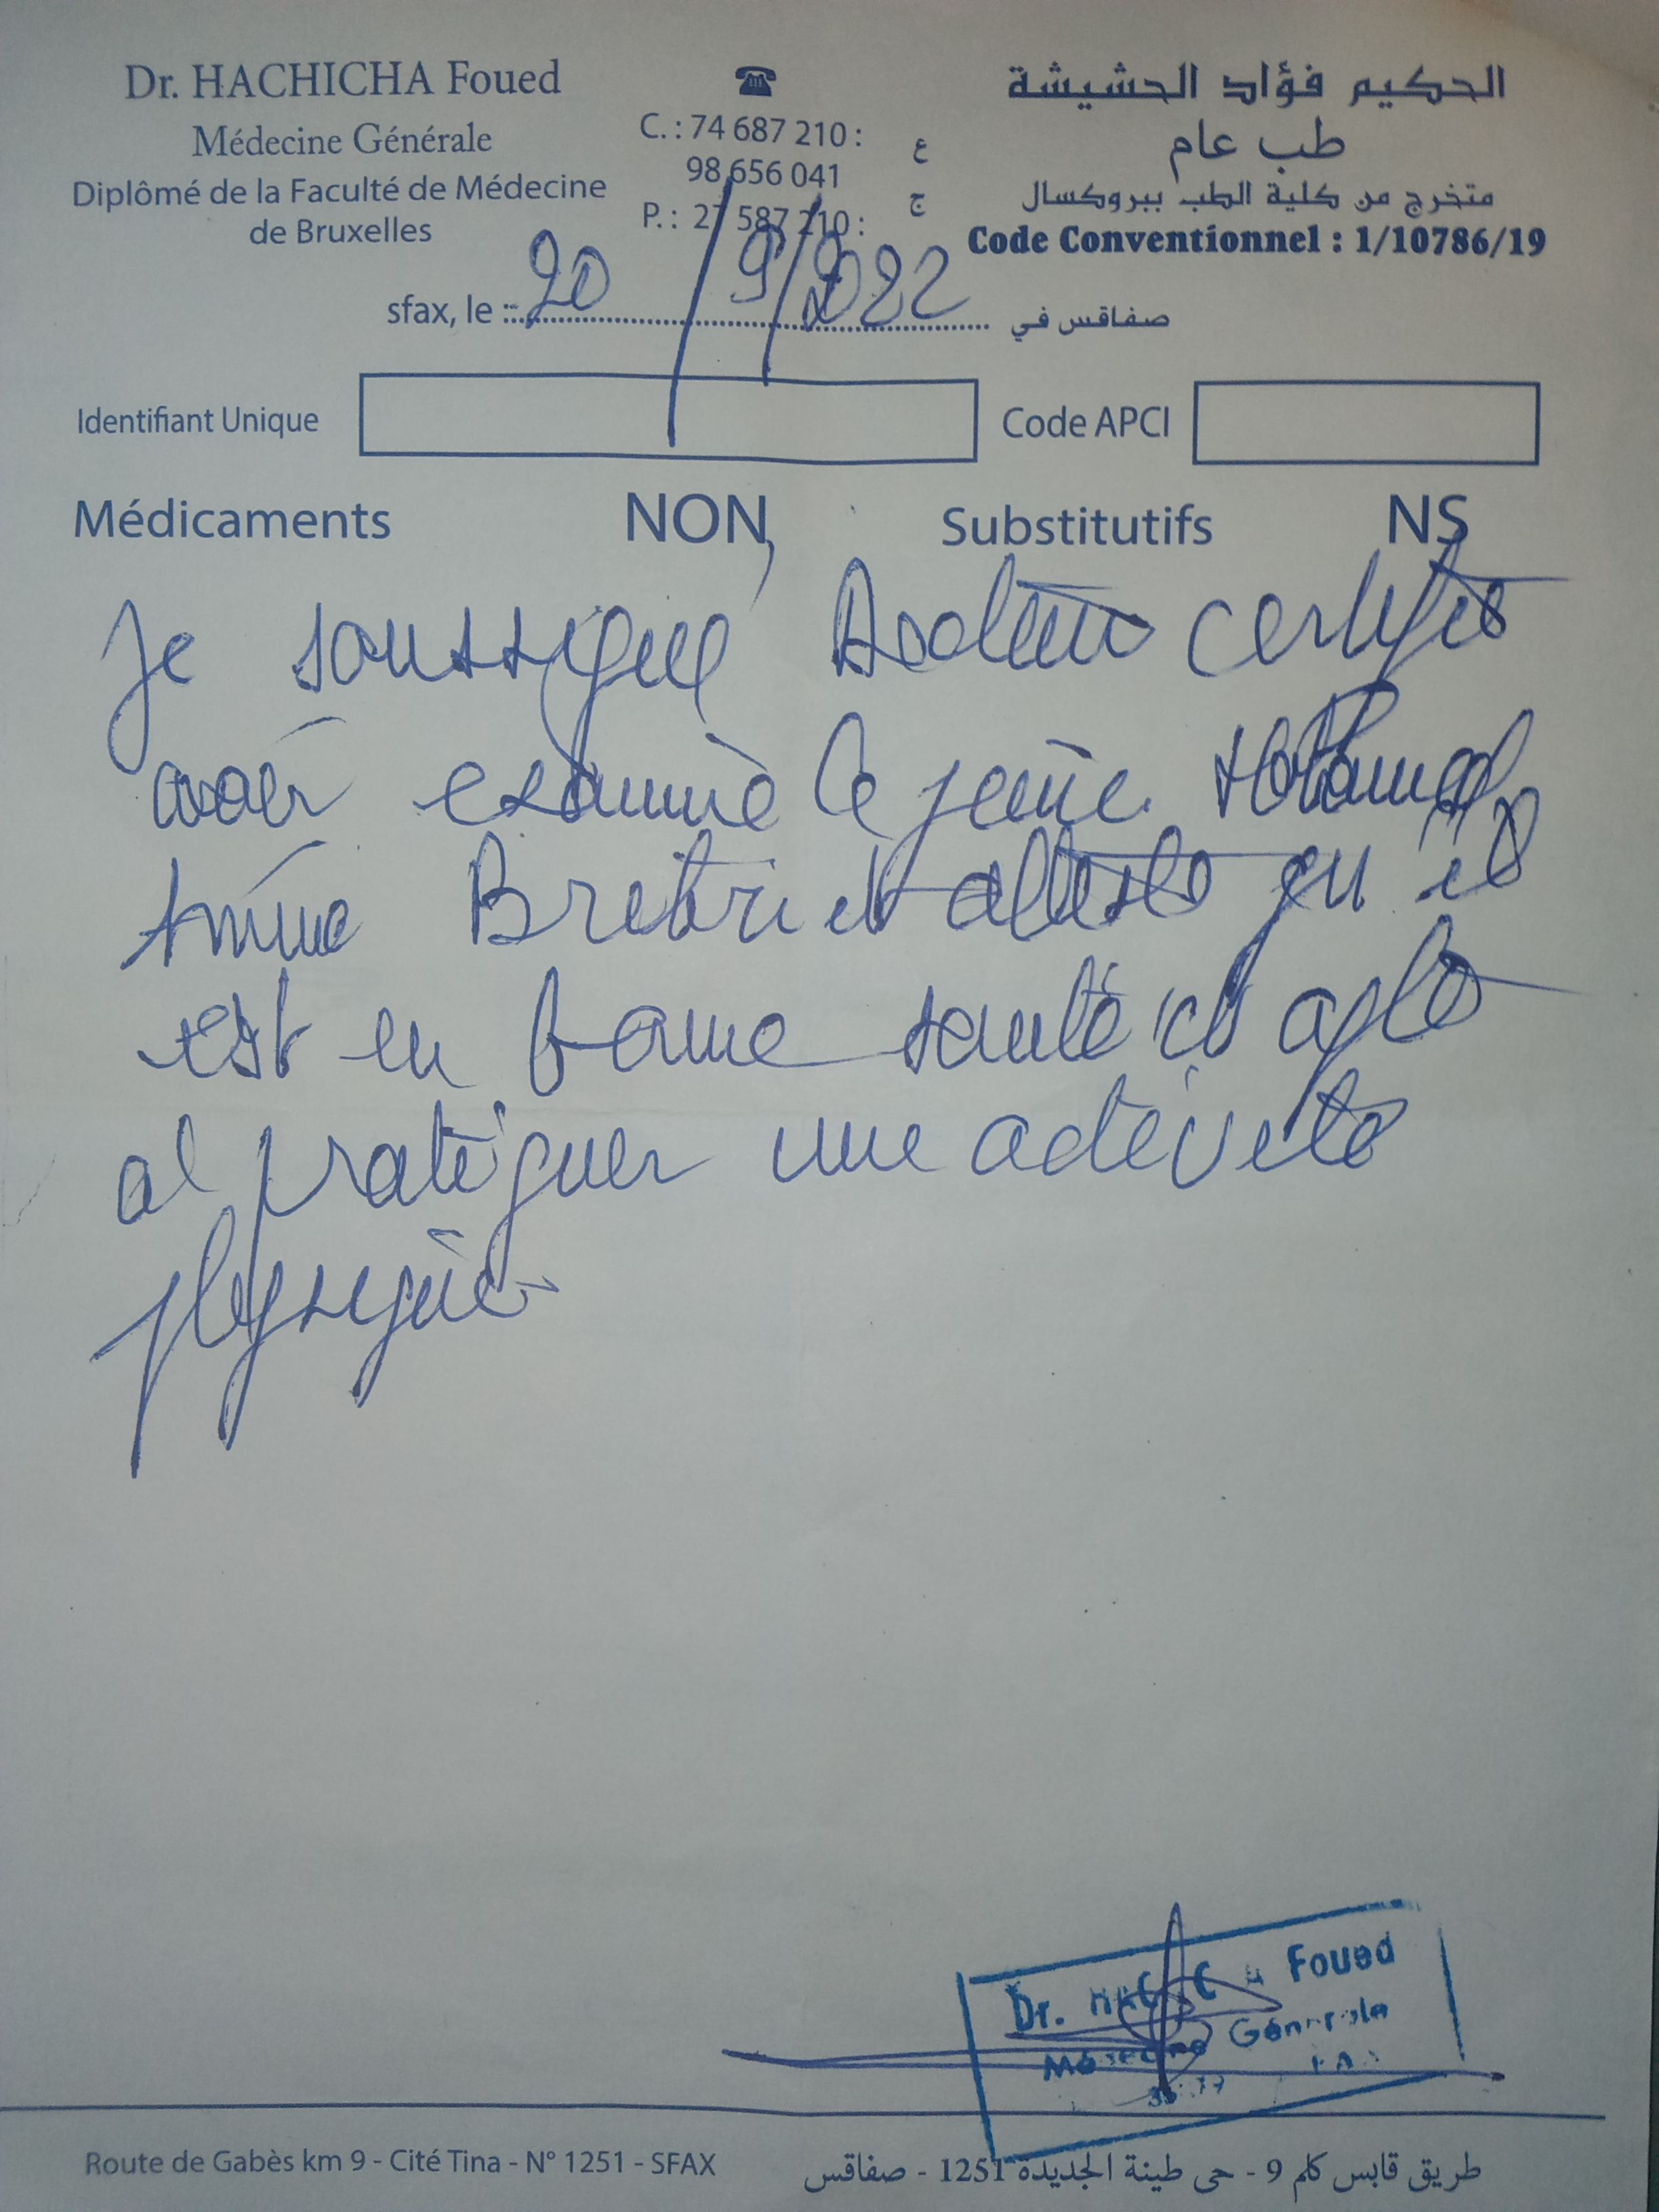 Dr. HACHICHA Foued
Médecine Générale
Diplômé de la Faculté de Médecine
de Bruxelles
C. : 74 687 210 : ع
98 656 041
P. : 27 587 210 : ج
الحكيم فؤاد الحشيشة
طب عام
متخرج من كلية الطب ببروكسال
Code Conventionnel : 1/10786/19
sfax, le : 20/9/2022 صفاقس في
Identifiant Unique Code APCI
Médicaments NON Substitutifs NS
Je soussigné Docteur certifie
avoir examiné le jeune Mohamed
Amine Bretri et atteste qu'il
est en bonne santé et apte
à pratiquer une activité
physique
Dr. Foued
Médecine Générale
Route de Gabès km 9 - Cité Tina - N° 1251 - SFAX
طريق قابس كلم 9 - حي طينة الجديدة 1251 - صفاقس